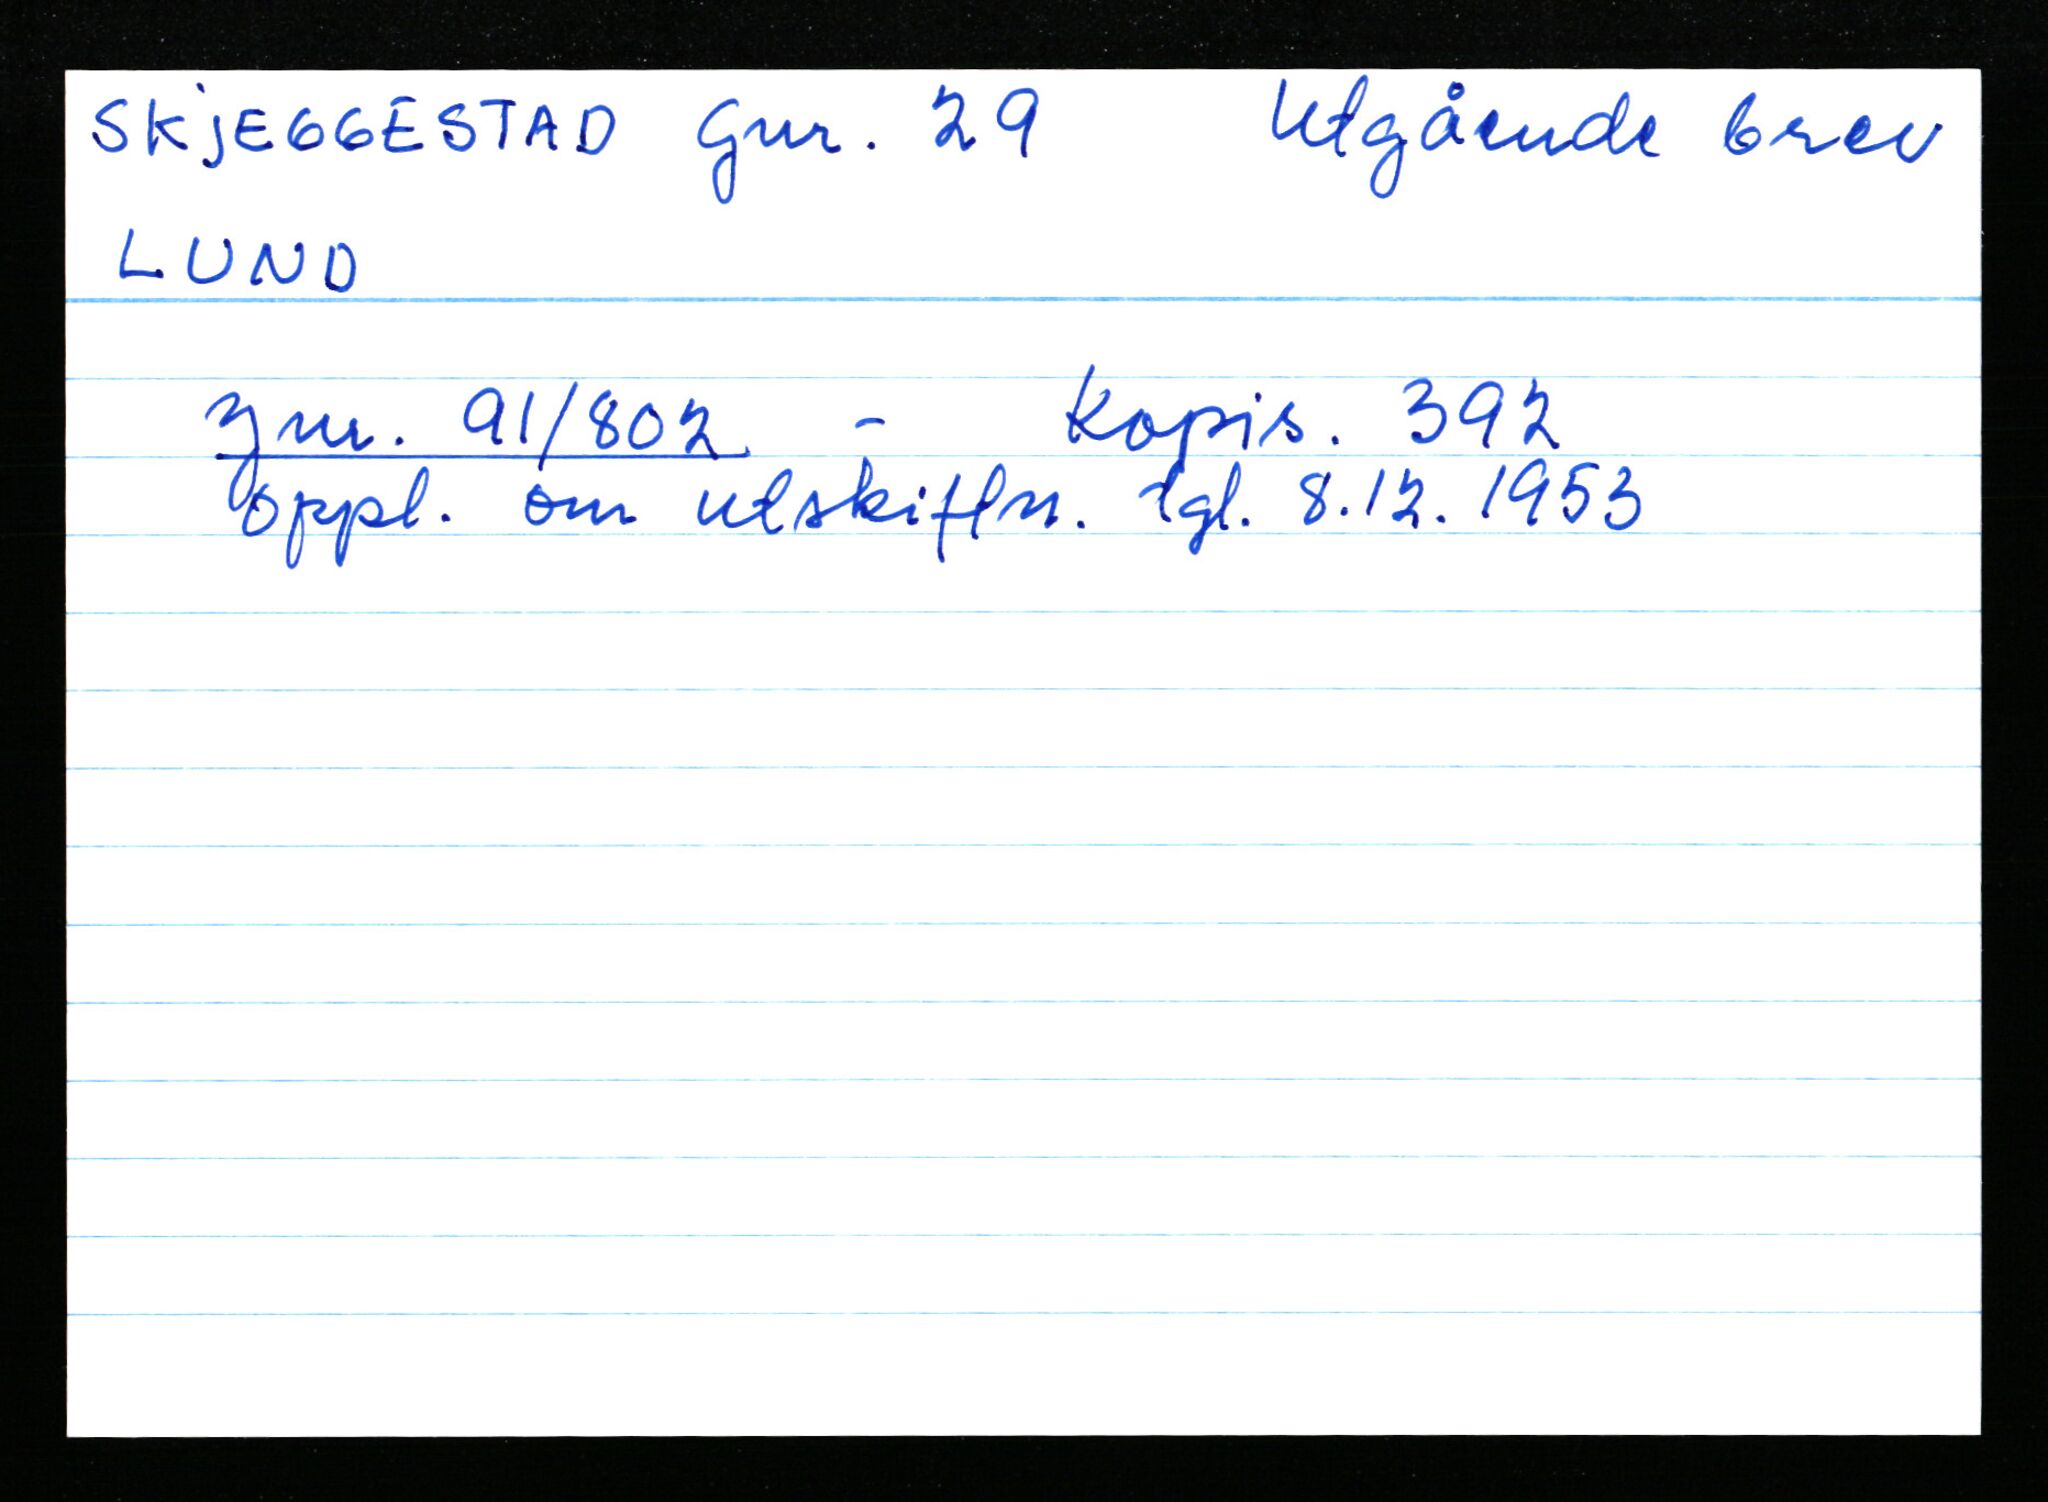 SKJEGGESTAD Gnr. 29 Utgående brev
LUND
Jnr. 91/802 - Kopis. 392
oppl. om utskiftn. tgl. 8.12.1953